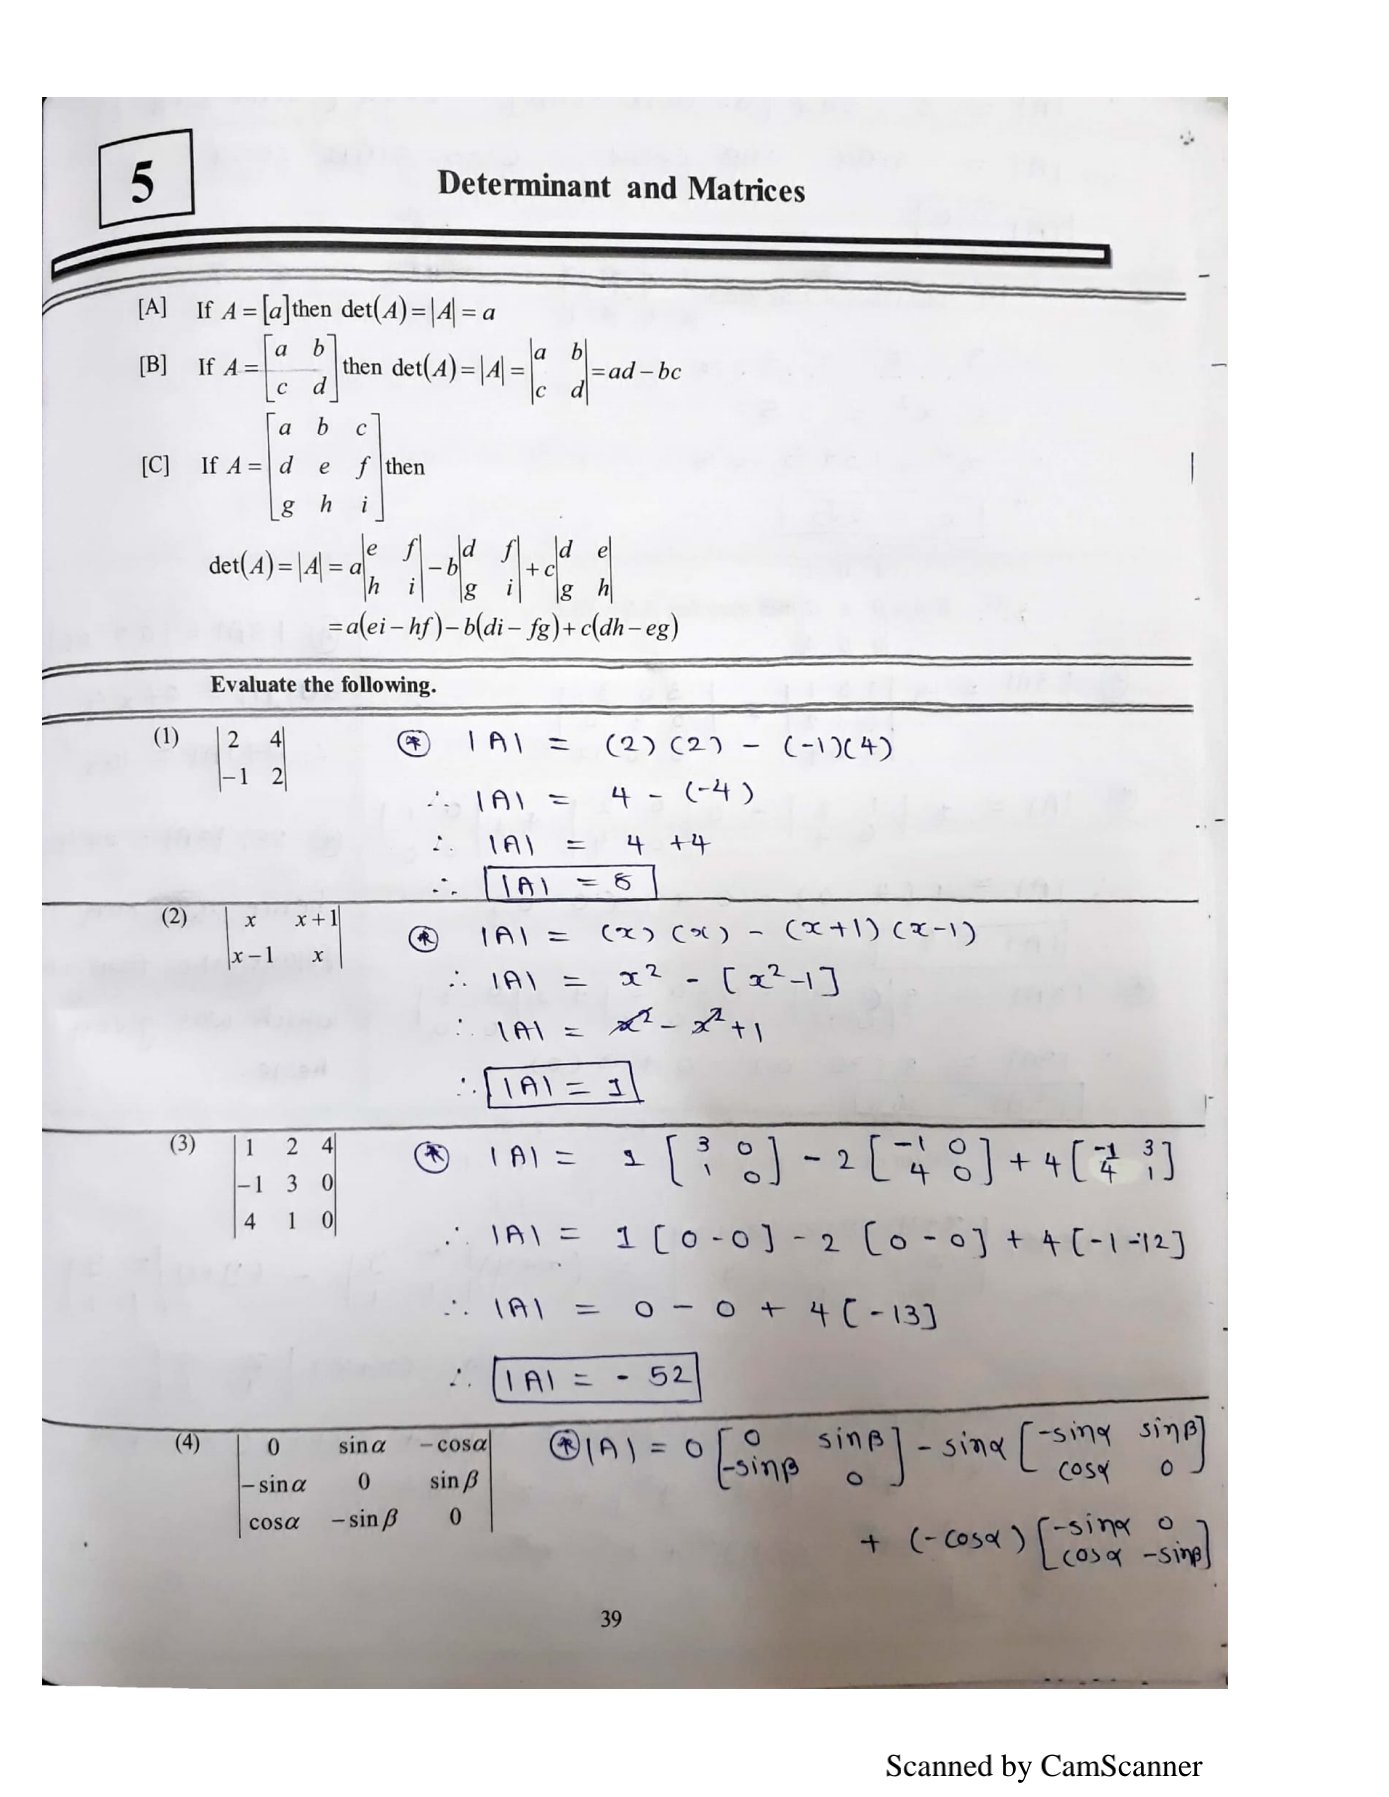 5
Determinant and Matrices
[A] If A = [a] then det(A) = |A| = a
[B] If A = [a b; c d] then det(A) = |A| = |a b; c d| = ad − bc
[C] If A = [a b c; d e f; g h i] then
det(A) = |A| = a|e f; h i| − b|d f; g i| + c|d e; g h|
= a(ei − hf) − b(di − fg) + c(dh − eg)
Evaluate the following.
(1) |2 4; −1 2| * |A| = (2)(2) − (−1)(4)
∴ |A| = 4 − (−4)
∴ |A| = 4 + 4
∴ |A| = 8
(2) |x x+1; x−1 x| * |A| = (x)(x) − (x+1)(x−1)
∴ |A| = x² − [x²−1]
∴ |A| = x² − x² + 1
∴ |A| = 1
(3) |1 2 4; −1 3 0; 4 1 0| * |A| = 1[3 0; 1 0] − 2[−1 0; 4 0] + 4[−1 3; 4 1]
∴ |A| = 1[0−0] − 2[0−0] + 4[−1−12]
∴ |A| = 0 − 0 + 4[−13]
∴ |A| = −52
(4) |0 sinα −cosα; −sinα 0 sinβ; cosα −sinβ 0| * |A| = 0[0 sinβ; −sinβ 0] − sinα[−sinα sinβ; cosα 0]
+ (−cosα)[−sinα 0; cosα −sinβ]
39
Scanned by CamScanner